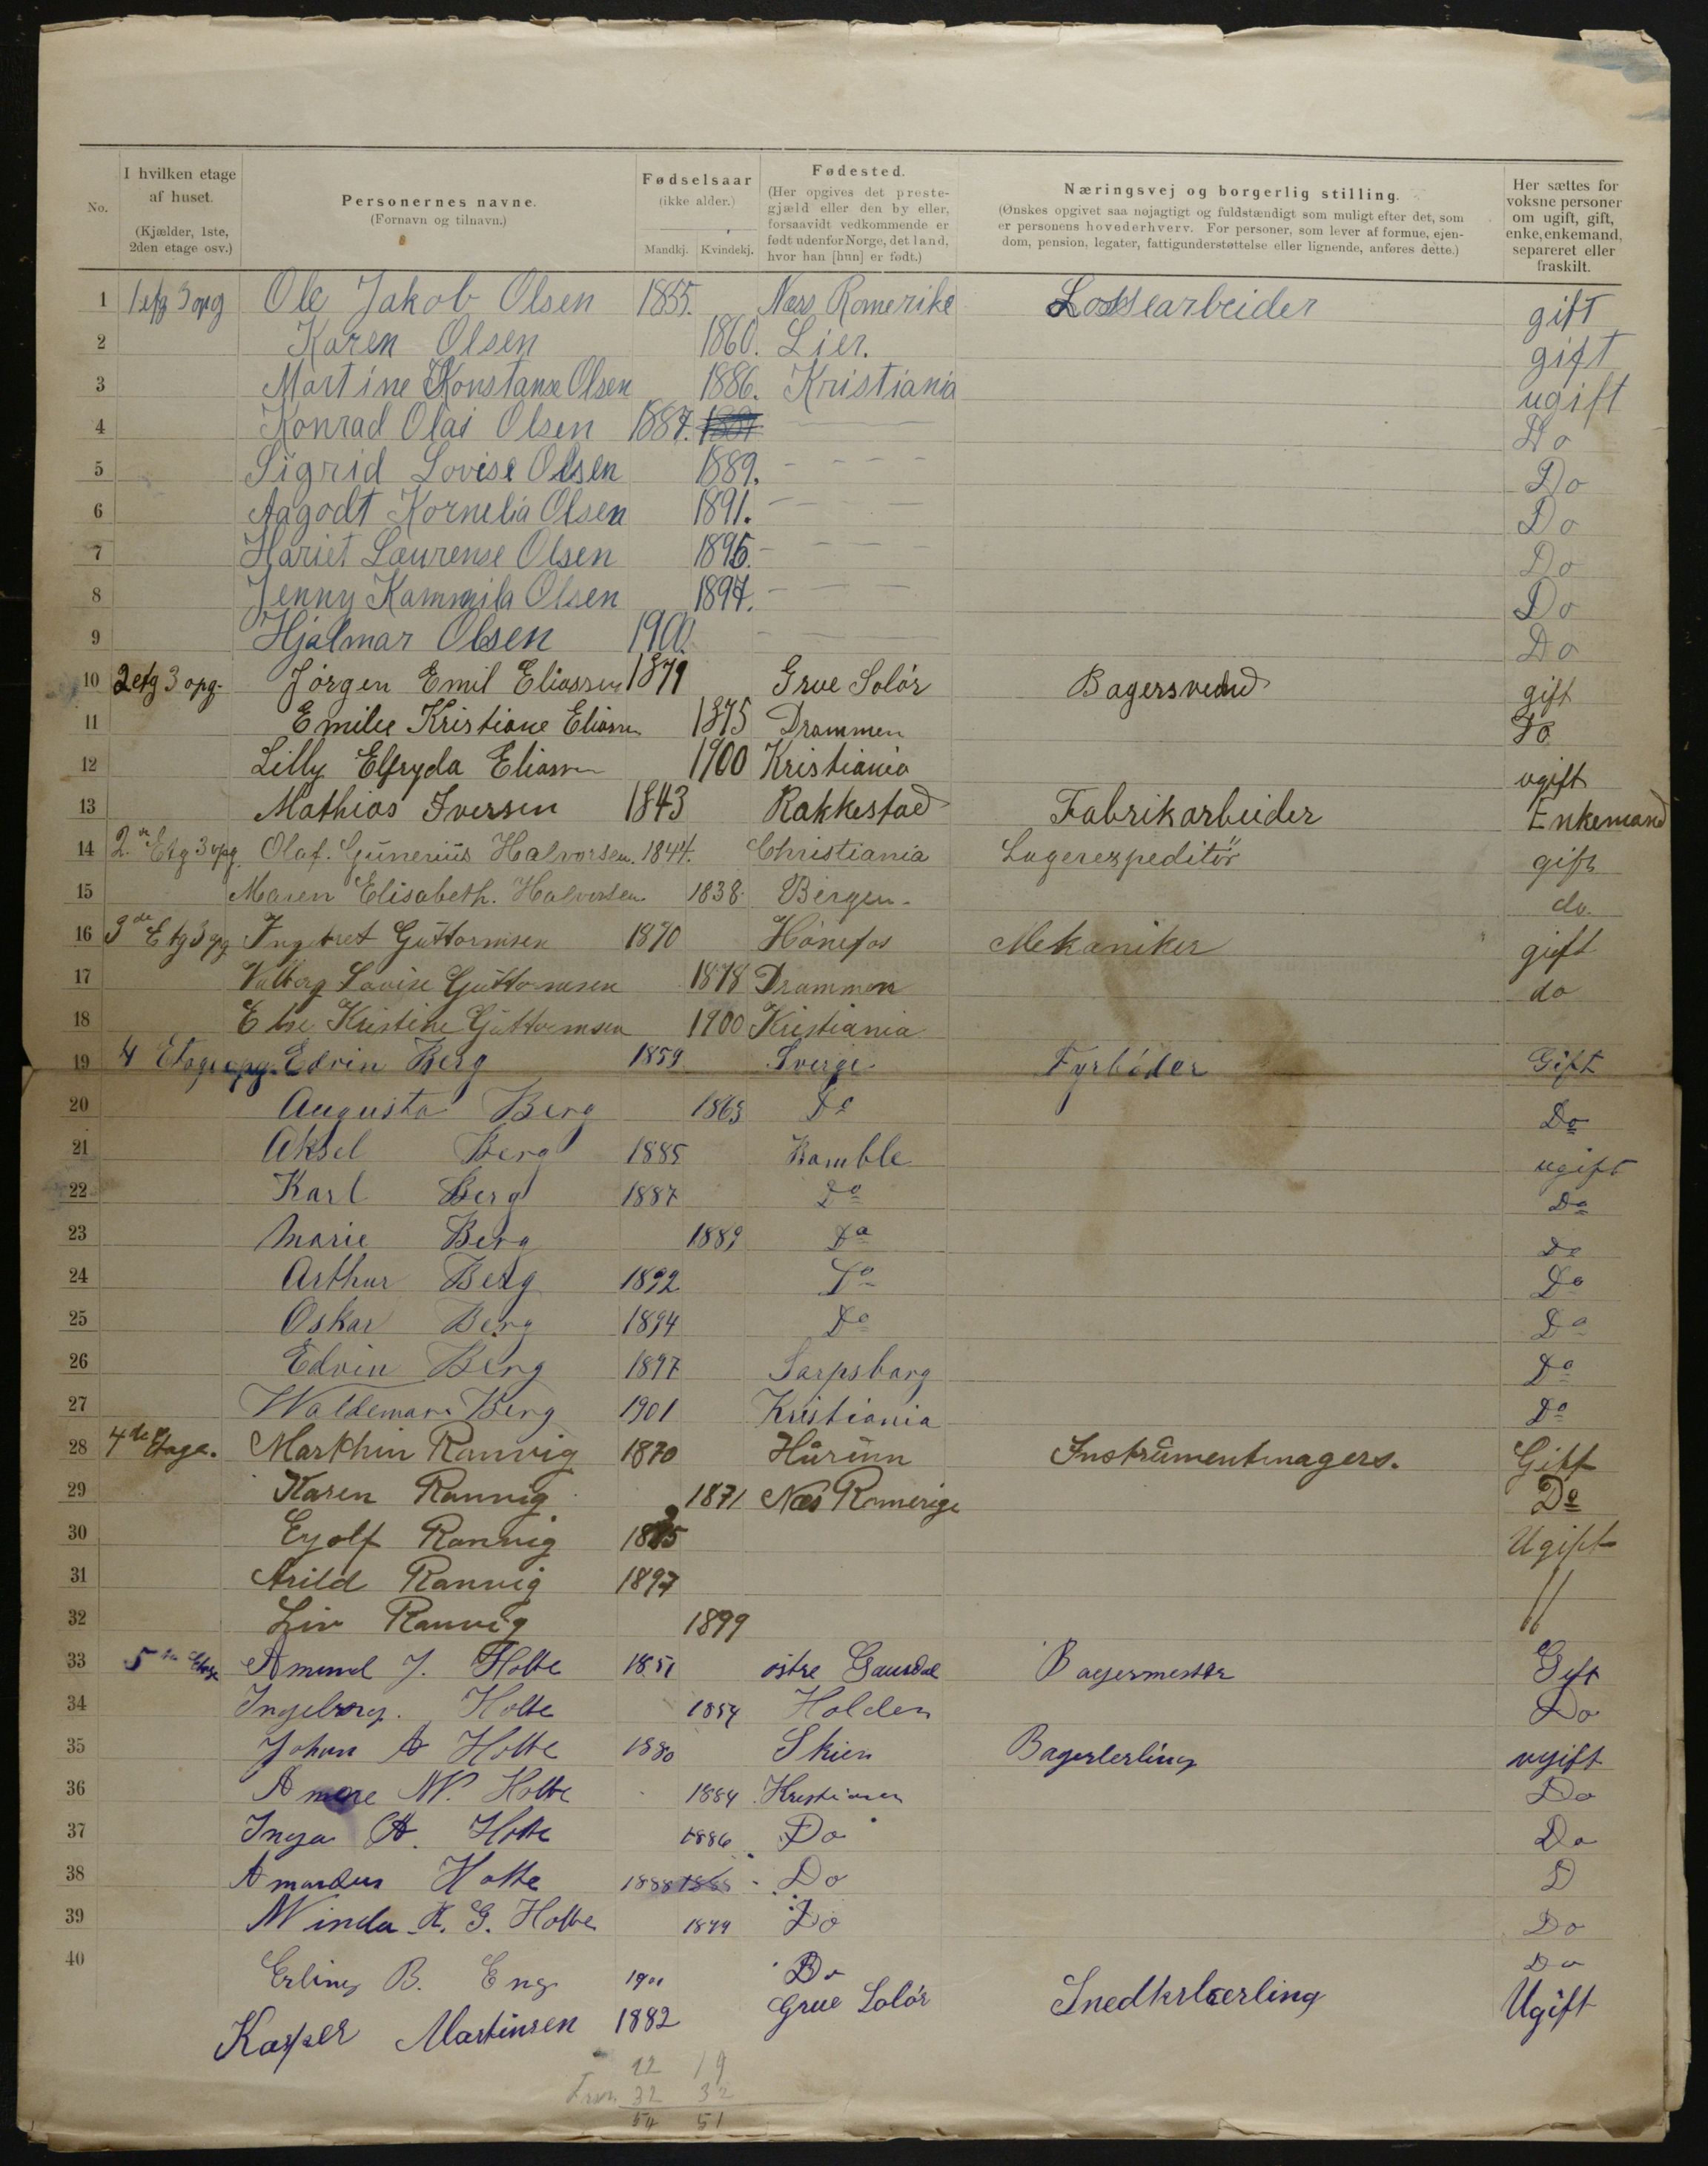 No.
I hvilken etage af huset. (Kjælder, 1ste, 2den etage osv.)
Personernes navne. (Fornavn og tilnavn.)
Fødselsaar (ikke alder.) Mandkj. Kvindekj.
Fødested. (Her opgives det prestegjæld eller den by eller, forsaavidt vedkommende er født udenfor Norge, det land, hvor han [hun] er født.)
Næringsvej og borgerlig stilling. (Ønskes opgivet saa nøjagtigt og fuldstændigt som muligt efter det, som er personens hovederhverv. For personer, som lever af formue, ejendom, pension, legater, fattigunderstøttelse eller lignende, anføres dette.)
Her sættes for voksne personer om ugift, gift, enke, enkemand, separeret eller fraskilt.
1 1 etg 3 opg Ole Jakob Olsen 1855. Næss Romerike Lossearbeider gift
2 Karen Olsen 1860. Lier. gift
3 Martine Konstanse Olsen 1886. Kristiania ugift
4 Konrad Olai Olsen 1887. Do
5 Sigrid Lovise Olsen 1889. Do
6 Aagodt Kornelia Olsen 1891. Do
7 Hariet Laurense Olsen 1895. Do
8 Jenny Kammila Olsen 1897. Do
9 Hjalmar Olsen 1900. Do
10 2 etg 3 opg. Jørgen Emil Eliassen 1879 Grue Solør Bagersvend gift
11 Emilie Kristiane Eliassen 1875 Drammen Do
12 Lilly Elfryda Eliassen 1900 Kristiania ugift
13 Mathias Iversen 1843 Rakkestad Fabrikarbeider Enkemand
14 2. Etg 3 opg. Olaf. Gunerius Halvorsen. 1844. Christiania Lagerexpeditør gift
15 Maren Elisabeth. Halvorsen 1838. Bergen. do.
16 3de Etg 3 opg Ingebret Guttormsen 1870 Hønefos Mekaniker gift
17 Valborg Lovise Guttormsen 1878 Drammen do
18 Else Kristine Guttormsen 1900 Kristiania
19 4 Etage opg. Edvin Berg 1859 Sverge Fyrbøder Gift
20 Augusta Berg 1863 Do Do
21 Aksel Berg 1885 Bamble ugift
22 Karl Berg 1887 Do Do
23 Marie Berg 1889 Do Do
24 Arthur Berg 1892 Do Do
25 Oskar Berg 1894 Do Do
26 Edvin Berg 1897 Sarpsborg Do
27 Waldemar Berg 1901 Kristiania Do
28 4de Etage. Marthin Ranvig 1870 Hurum Instrumentmagers. Gift
29 Karen Ranvig 1871 Næs Romerige Do
30 Eyolf Ranvig Ugift
31 Arild Ranvig 1897 //
32 Liv Ranvig 1899
33 5te Etage Amund J. Holte 1851 østre Gausdal Bagermester Gift
34 Ingeborg. Holte 1854 Holden Do
35 Johan A Holte 1880 Skien Bagerlerling ugift
36 N. Holte 1884 Do
37 Inga A. Holte 1886 Do Do
38 Amandus Holte 1888 Do D
39 K. G. Holte Do Do
40 Erling B. Eng 1901 Do Do
Kasper Martinsen 1882 Grue Solør Snedkrlærling Ugift
19
32 32
54 51